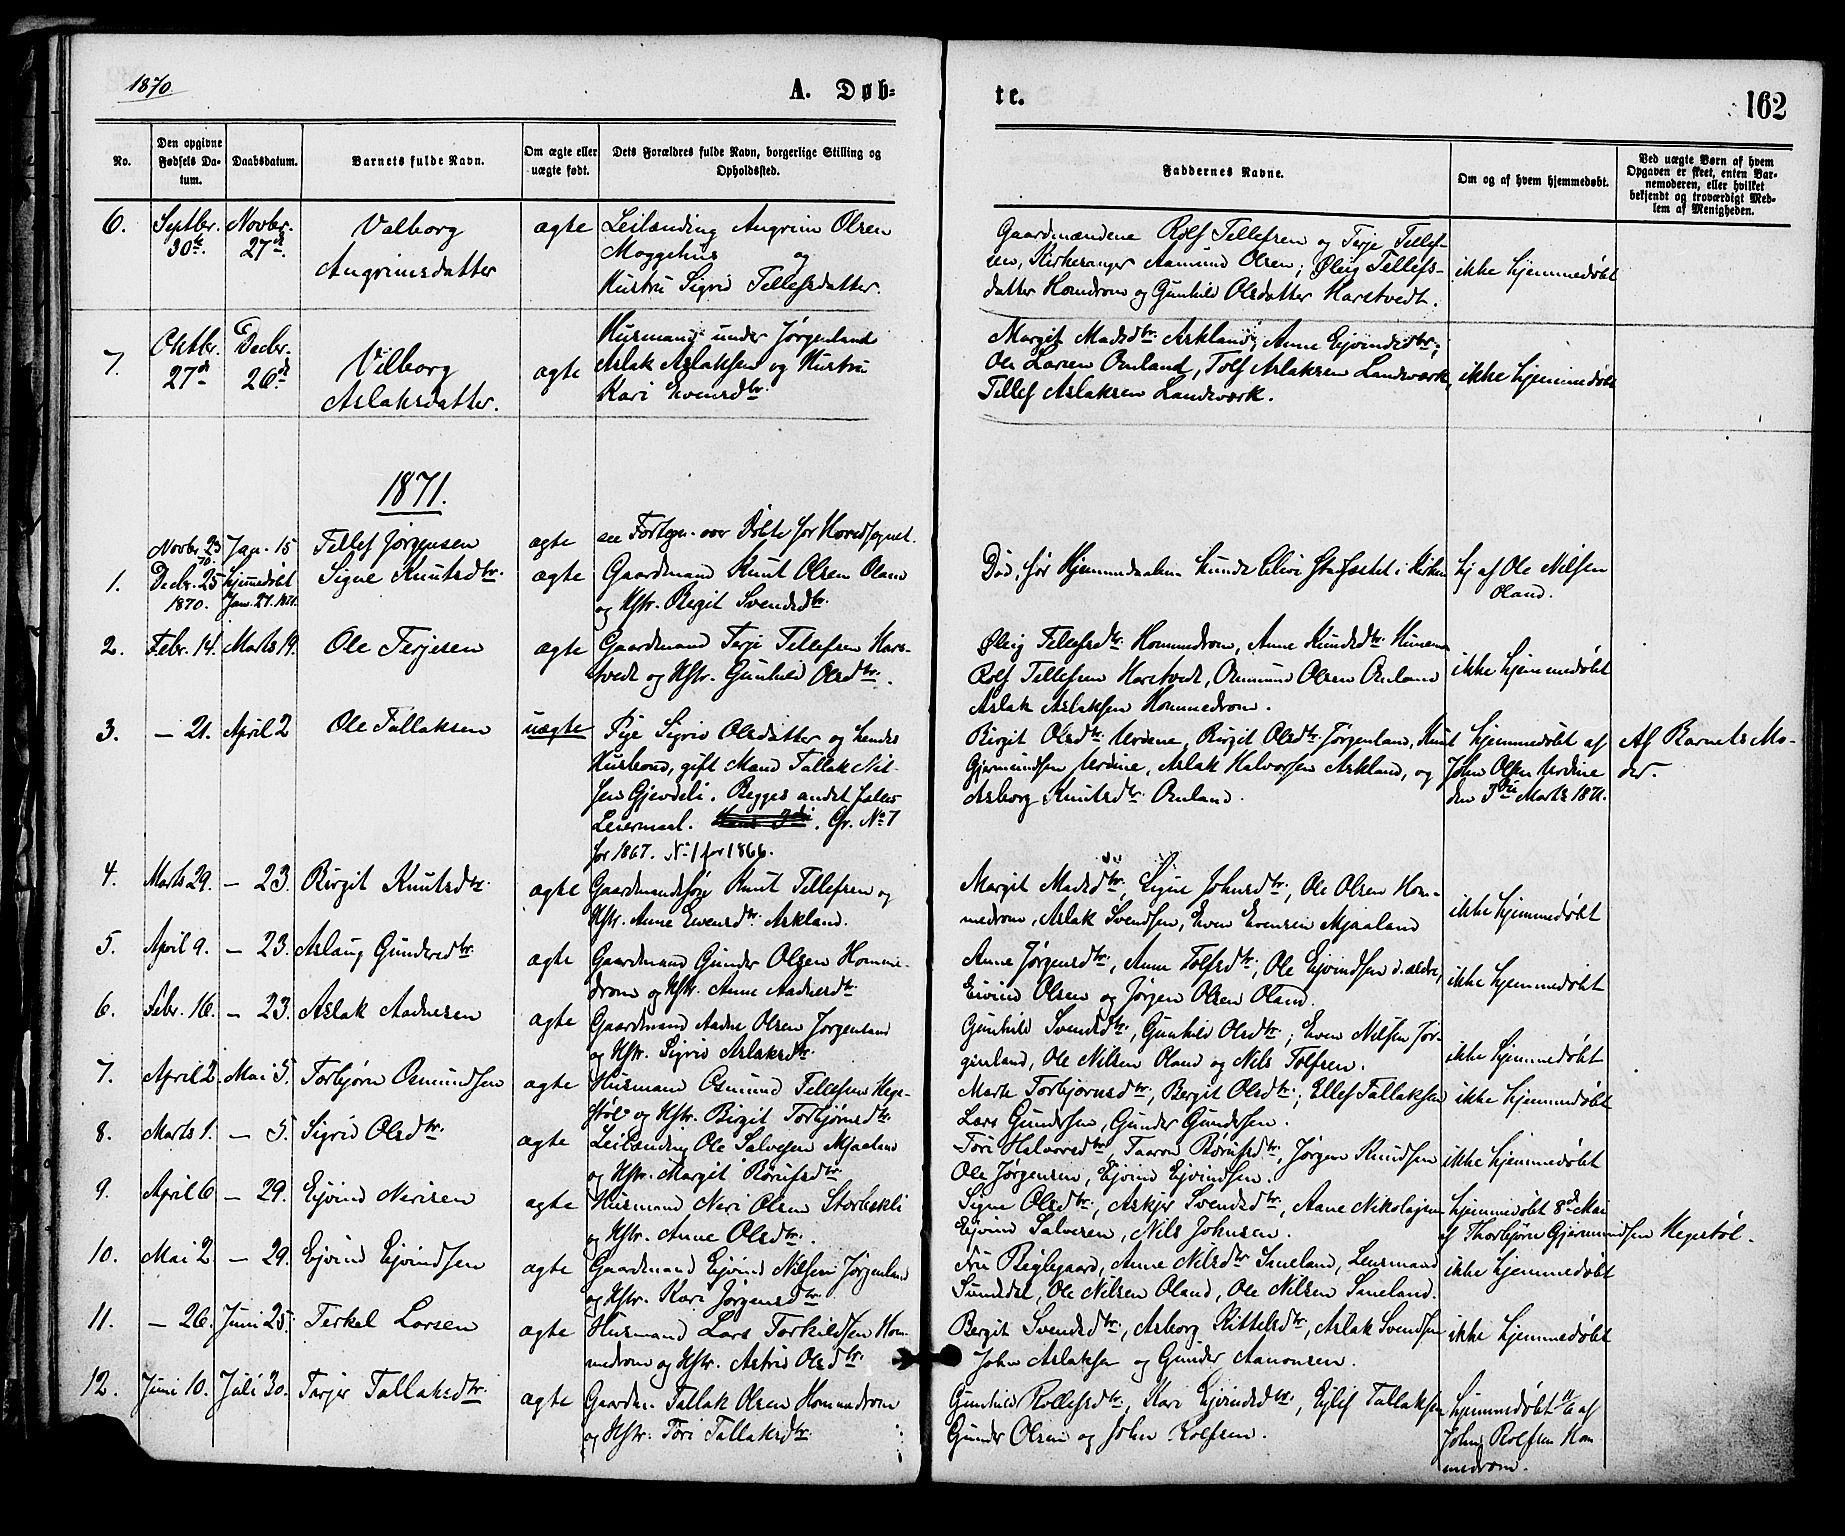 1870.
A. Døb=
te.
162
No.
Den opgivne Fødsels Da-tum.
Daabsdatum.
Barnets fulde Navn.
Om ægte eller uægte født.
Dets Forældres fulde Navn, borgerlige Stilling og Opholdssted.
Faddernes Navne.
Om og af hvem hjemmedøbt.
Ved uægte Børn af hvem Opgaven er skeet, enten Bar-nemoderen, eller hvilket bekjendt og troværdigt Med-lem af Menigheden.
6. Septbr. 30te Novbr. 27de Valborg Angrimsdatter ægte Leilænding Angrim Olsen
Moggehus og
Hustru Sigrid Tellefsdatter.
Gaardmændene Rolf Tellefsen og Terje Tellef-
sen, Kirkesanger Aamund Olsen; Øleig Tellefs-
datter Homdrom og Gunhild Olsdatter Harstvedt.
ikke hjemmedøbt
7. Oktbr. 27de Decbr. 26de Vilborg Aslaksdatter. ægte Husmand under Jørgenland
Aslak Aslaksen og Hustru
Kari Evensdtr.
Margit Madsdtr. Askland, Anne Ejvindsdtr.;
Ole Larsen Omland, Tolf Aslaksen Landsværk,
Tellef Aslaksen Landsværk.
ikke hjemmedøbt
1871.
Novbr. 23 70. Jan. 15 Tellef Jørgensen ægte see Fortegn. over Døbte for Hovedsognet.
1. Decbr. 25 1870. hjemmedøbt Jan. 27. 1871. Signe Knutsdtr. ægte Gaardmand Knut Olsen Oland
og Hstr. Birgit Svendsdtr.
Død, før Hjemmedaaben kunde blive stadfæstet i Kirken
hj. af Ole Nilsen
Oland.
2. Febr. 14. Marts 19. Ole Terjesen ægte Gaardmand Terje Tellefsen Hars-
tvedt og Hstr. Gunhild Olsdtr.
Øleig Tellefsdtr. Hommedrom, Anne Knudsdtr.
Rolf Tellefsen Harstvedt, Osmund Olsen Omland
Aslak Aslaksen Hommedrom.
ikke hjemmedøbt
3. – 21. April 2 Ole Tallaksen uægte Pige Sigrid Olsdatter og hendes
Husbond, gift Mand Tallak Nil-
sen Gjevdeli. Begges andet falds
Leiermaal. Cfr. No 7
for 1867. No 1 for 1866.
Birgit Olsdtr. Urdene, Birgit Olsdtr. Jørgenland, Knut
Gjermundsen Urdene, Aslak Halvorsen Askland, og
Asborg Knutsdtr. Omland.
hjemmedøbt af
John Olsen Urdene
den 3die Marts 1871.
Af Barnets Mo-
der.
4. Marts 29. – 23. Birgit Knutsdtr. ægte Gaardmandsfolk Knut Tellefsen og
Hstr. Anne Evensdtr. Askland.
Margit Madsdtr., Signe Johnsdtr., Ole Olsen Hom-
medrom, Aslak Svendsen, Even Evensen Mjaaland
ikke hjemmedøbt
5. April 9. – 23. Aslaug Gundersdtr. ægte Gaardmand Gunder Olsen Homme-
drom og Hstr. Anne Aadnesdtr.
Anne Jørgensdtr., Anne Tolfsdtr., Ole Ejvindsen d. ældre,
Eivind Olsen og Jørgen Olsen Oland.
ikke hjemmedøbt
6. Febr. 16. – 23. Aslak Aadnesen ægte Gaardmand Aadne Olsen Jørgenland
og Hstr. Sigrid Aslaksdtr.
Gunhild Svendsdtr., Gunhild Olsdtr.; Even Nilsen Jør-
genland, Ole Nilsen Oland og Nils Tolfsen.
ikke hjemmedøbt
7. April 2. Mai 5. Torbjørn Osmundsen ægte Husmand Osmund Tellefsen Hege-
støl og Hstr. Birgit Torbjørnsdtr.
Marte Torbjørnsdtr., Bergit Olsdtr.; Ellef Tallaksen
Lars Gundersen, Gunder Gundersen.
ikke hjemmedøbt
8. Marts 1. – 5. Sigrid Olsdtr. ægte Leilænding Ole Salvesen Mjaaland
og Hstr. Margit Rørufsdtr.
Tøri Halvorsdtr., Taaron Rørufsdtr., Jørgen Knudsen
Ole Jørgensen, Ejvind Ejvindsen.
ikke hjemmedøbt
9. April 6 – 29. Ejvind Nerisen ægte Husmand Neri Olsen Storbekli
og Hstr. Anne Olsdtr.
Signe Olsdtr., Askjer Svendsdtr., Aane Nikolajsen
Ejvind Salvesen, Nils Johnsen.
hjemmedøbt 8de Mai
af Thorbjørn Gjermundsen Hegestøl.
10. Mai 2. – 29. Ejvind Ejvindsen ægte Gaardmand Ejvind Nilsen Jørgenland
og Hstr. Kari Jørgensdtr.
Fru Beglegaard, Anne Nilsdtr. Smeland, Lensmand
Svendsen, Ole Nilsen Oland, Ole Nilsen Smeland.
ikke hjemmedøbt
11. – 26. Juni 25. Terkel Larsen ægte Husmand Lars Torkildsen Hom-
medrom og Hstr. Astrid Olsdtr.
Bergit Svendsdtr., Asborg Kittelsdtr., Aslak Svendsen
John Aslaksen og Gunder Aanonsen.
ikke hjemmedøbt
12. Juni 10. Juli 30. Tarjer Tallaksdtr. ægte Gaardm. Tallak Olsen Hommedrom
og Hstr. Tøri Tallaksdtr.
Gunhild Rollefsdtr., Kari Ejvindsdtr., Ejlef Tallaksen
Gunder Olsen og John Rolfsen.
hjemmedøbt 11/6 af
John Rolfsen Hom
medrom.